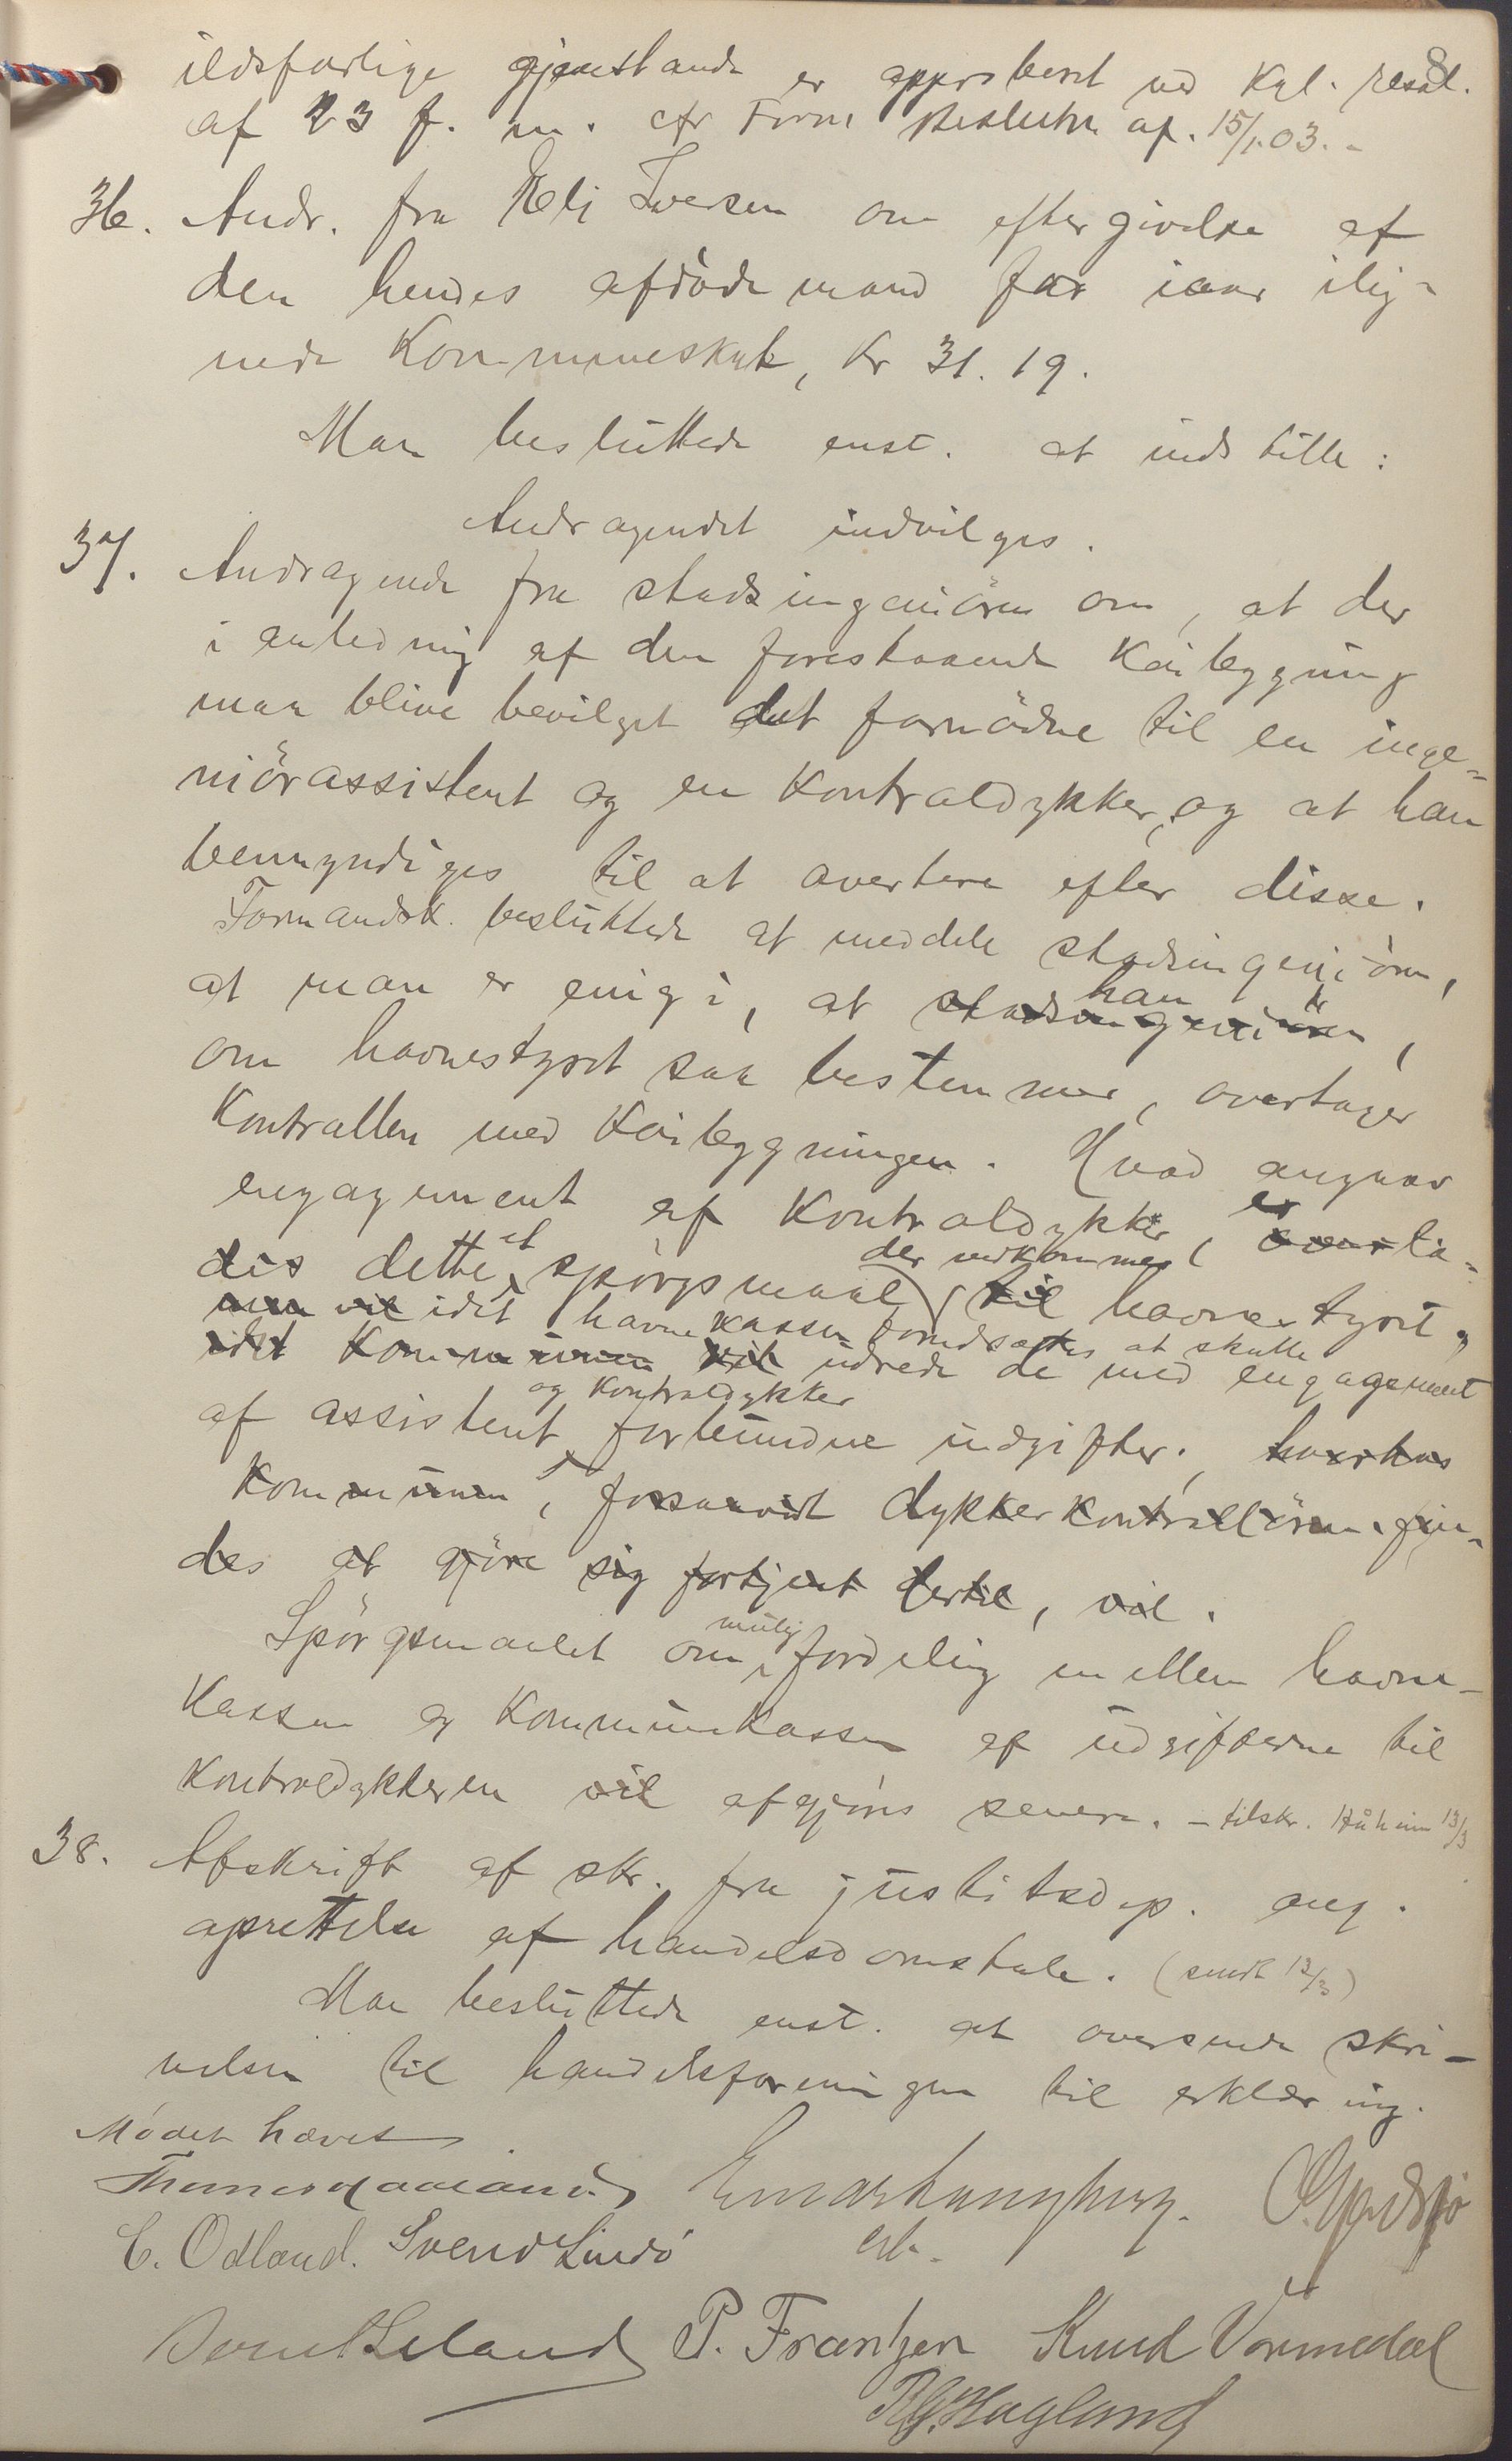 8
ildsfarlige gjenstande er approberet ved Kgl. resol.
af 23 f. m. cfr Form beslutn af. 15/1.03. -
36. Andr. fra Eli Iversen om eftergivelse af
den hendes afdöde mand for iaar ilig-
nede Kommuneskat, Kr 31.19.
Man besluttede enst. at indstille:
Andragendet indvilges.
37. Andragende fra stadsingeniören om, at der
i anledning af den forestaaende Kailægning
maa blive bevilget det fornödne til en inge-
niörassistent og en Kontroldykker, og at han
bemyndiges til at avertere efter disse.
Formandsk. besluttede at meddele stadsingeniören,
at man er enig i, at stadsingeniören han,
om havnestyret saa bestemmer, overtager
Kontrollen med Kailægningen. Hvad angaar
engagement af Kontroldykker, er
des dette et spörgsmaal, der vedkommer til havnestyret,
idet havnekassen forudsættes at skulle
idet Kommunen vil udrede de med engagement
af assistent og Kontroldykker forbundne udgifter.
Kommunen, forsaavidt dykkerkontrollören fin-
des at gjöre sig fortjent dertil, vil.
Spörgsmaalet om mulig fordeling mellem havne-
kassen og Kommunekassen af udgifterne til
Kontroldykkeren vil afgjöres senere. - tilskr. 13/3
38. Afskrift af skr. fra justitsdep. ang.
oprettelse af handelsdomstole. (sendt 12/3)
Man besluttede enst. at oversende skri-
velsen til handelsforeningen til erklæring.
Mödet hævet
C. Odland. Svend Lindö
P. Frantzen Knud Vormedal
Hagland